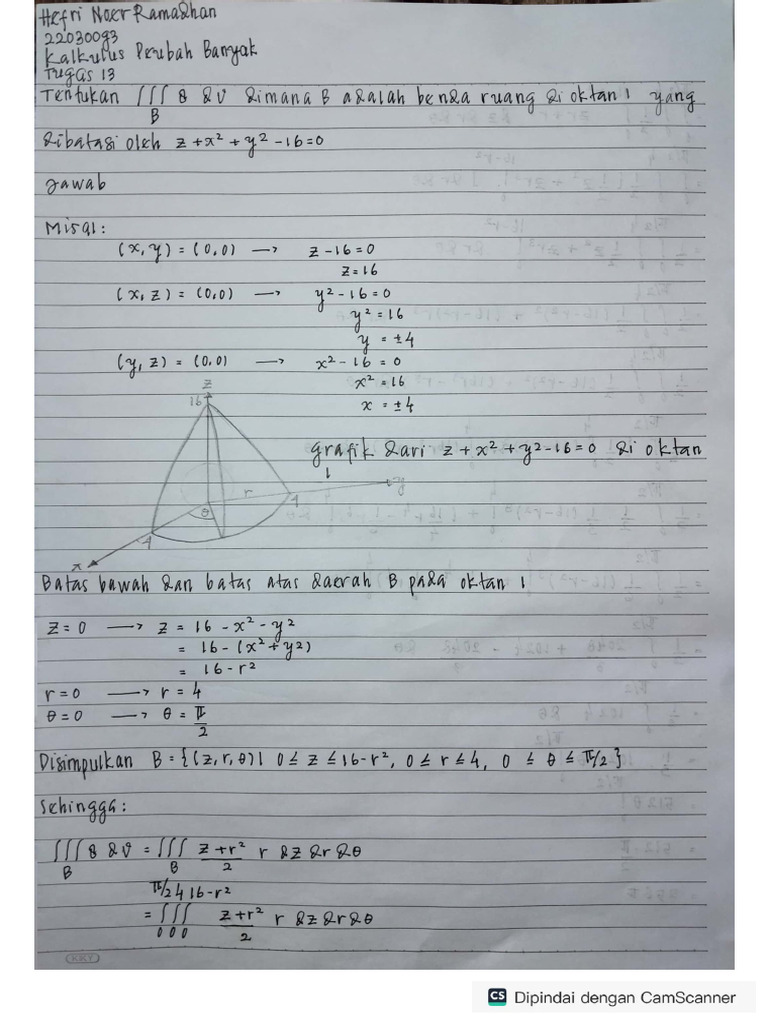 Hefri Noer Ramadhan
22030093
Kalkulus Peubah Banyak
Tugas 13
Tentukan ∭ 8 dV dimana B adalah benda ruang di oktan 1 yang
B
dibatasi oleh z + x² + y² - 16 = 0
Jawab
Misal:
(x, y) = (0,0) → z - 16 = 0
z = 16
(x, z) = (0,0) → y² - 16 = 0
y² = 16
y = ±4
(y, z) = (0,0) → x² - 16 = 0
x² = 16
x = ±4
z
16
grafik dari z + x² + y² - 16 = 0 di oktan
1
r
y
4
θ
4
x
Batas bawah dan batas atas daerah B pada oktan 1
z = 0 → z = 16 - x² - y²
= 16 - (x² + y²)
= 16 - r²
r = 0 → r = 4
θ = 0 → θ = π/2
Disimpulkan B = {(z, r, θ) | 0 ≤ z ≤ 16 - r², 0 ≤ r ≤ 4, 0 ≤ θ ≤ π/2}
Sehingga:
∭ 8 dV = ∭ (z + r²)/2 r dz dr dθ
B B
π/2 4 16-r²
= ∭ (z + r²)/2 r dz dr dθ
0 0 0
KKY
CS Dipindai dengan CamScanner